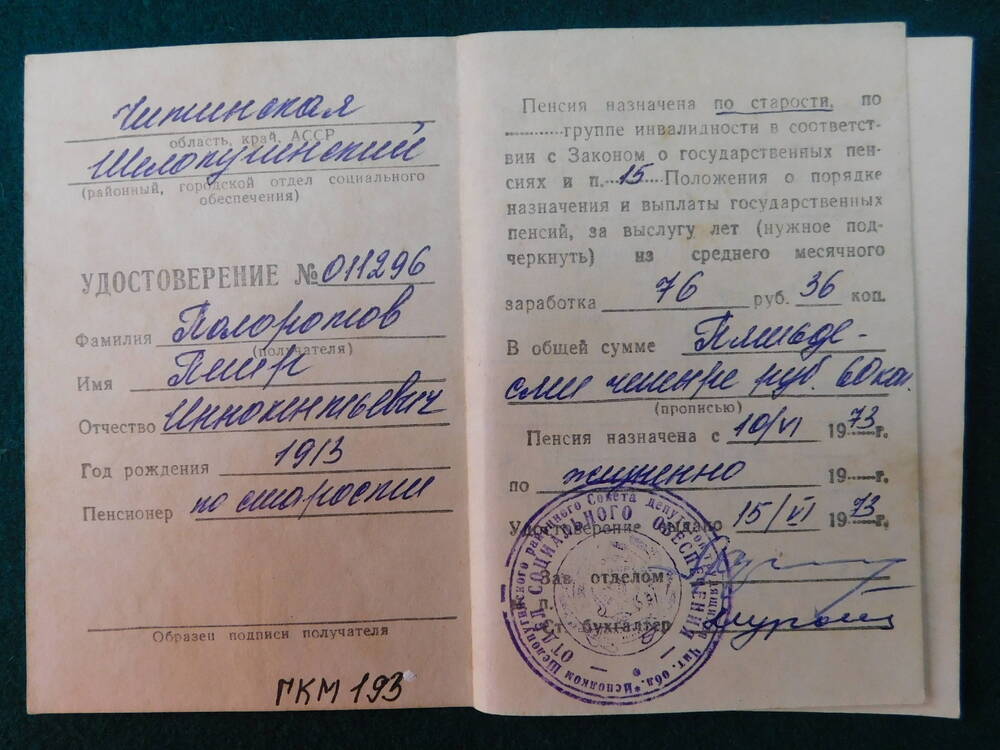 Читинская
область, край, АССР
Шелопугинский
(районный, городской отдел социального
обеспечения)
УДОСТОВЕРЕНИЕ № 011296
Фамилия Полоротов
(получателя)
Имя Петр
Отчество Иннокентьевич
Год рождения 1913
Пенсионер по старости
Образец подписи получателя
ГКМ 193
Пенсия назначена по старости, по
группе инвалидности в соответст-
вии с Законом о государственных пен-
сиях и п. 15 Положения о порядке
назначения и выплаты государственных
пенсий, за выслугу лет (нужное под-
черкнуть) из среднего месячного
заработка 76 руб. 36 коп.
В общей сумме Пятьде-
сят четыре руб. 60 коп.
(прописью)
Пенсия назначена с 10/VI 1973 г.
по жизненно 19 г.
Удостоверение выдано 15/VI 1973 г.
Зав. отделом
Ст. бухгалтер
ОТДЕЛ СОЦИАЛЬНОГО ОБЕСПЕЧЕНИЯ
Исполком Шелопугинского районного Совета депутатов трудящихся Чит. обл.